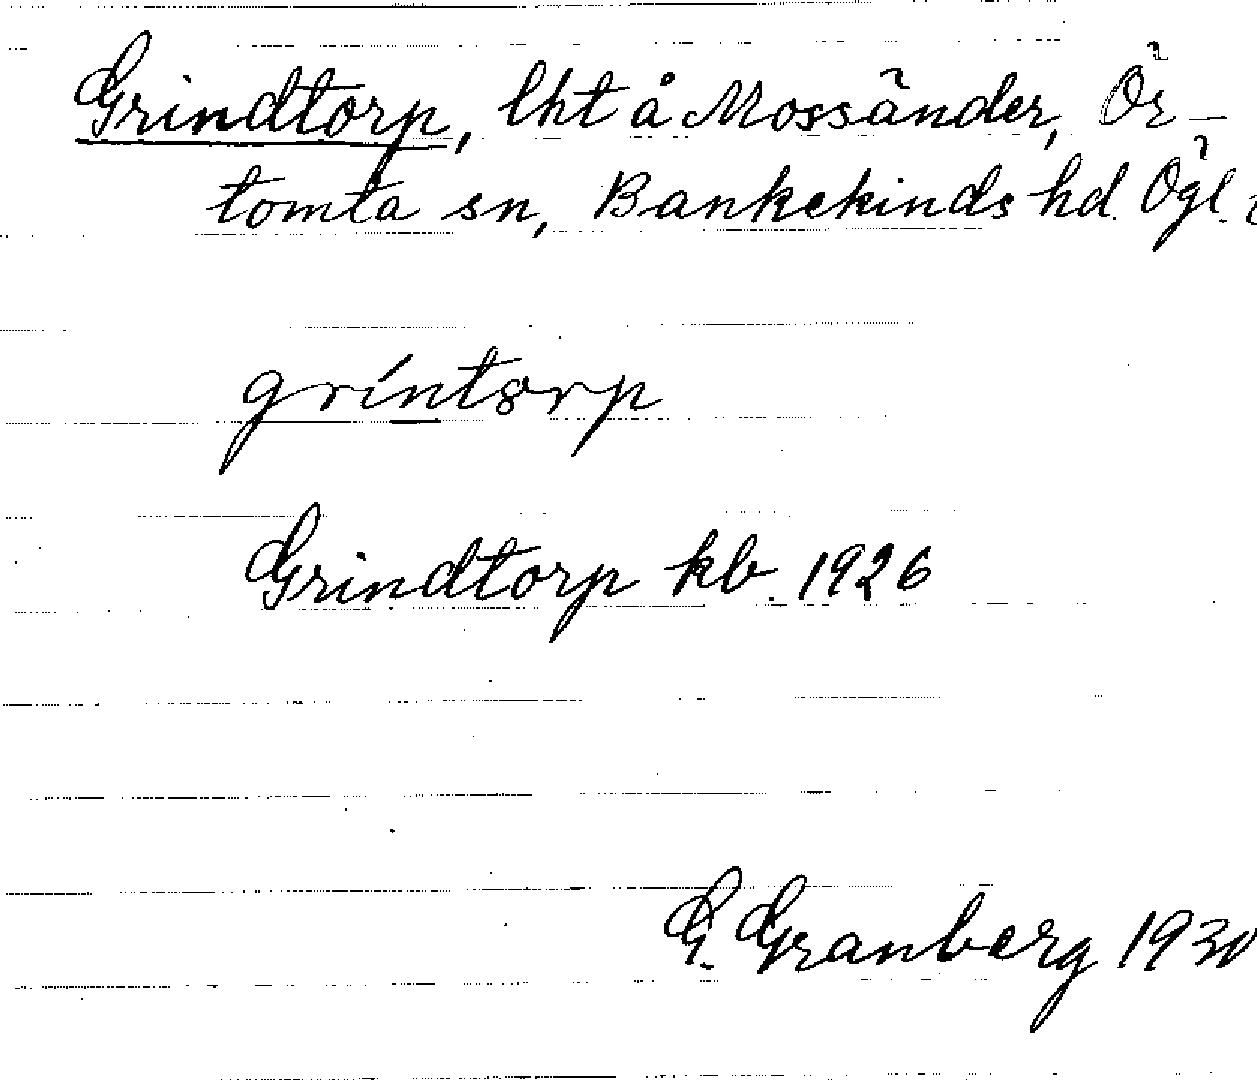 Grindtorp, lht å Mossänder, Ör-
tomta sn, Bankekinds hd. Ögl.
gríntorp
Grindtorp kb. 1926
G. Granberg 1930